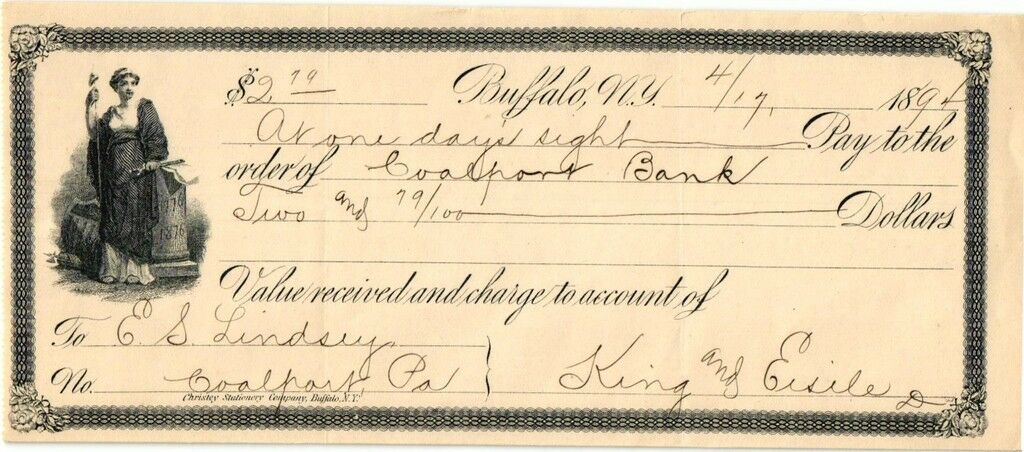 $2 79 Buffalo, N.Y. 4/17, 1894
At one day's sight Pay to the
order of Coalport Bank
Two and 79/100 Dollars
Value received and charge to account of
To E. S. Lindsey
No. Coalport Pa King and Eisele
Christey Stationery Company, Buffalo, N.Y.
1876